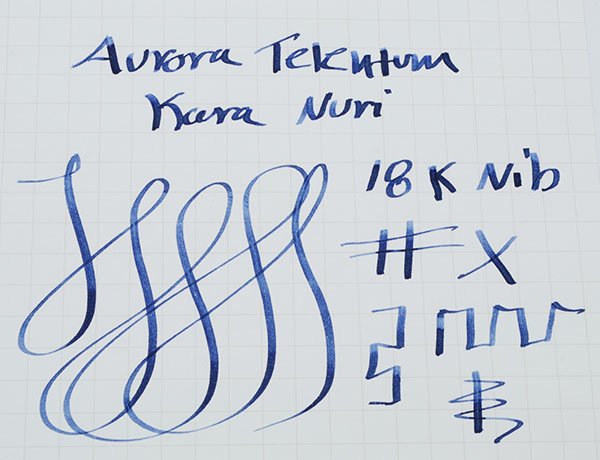 Aurora Telentum
Kara Nuri
18 K Nib
# X